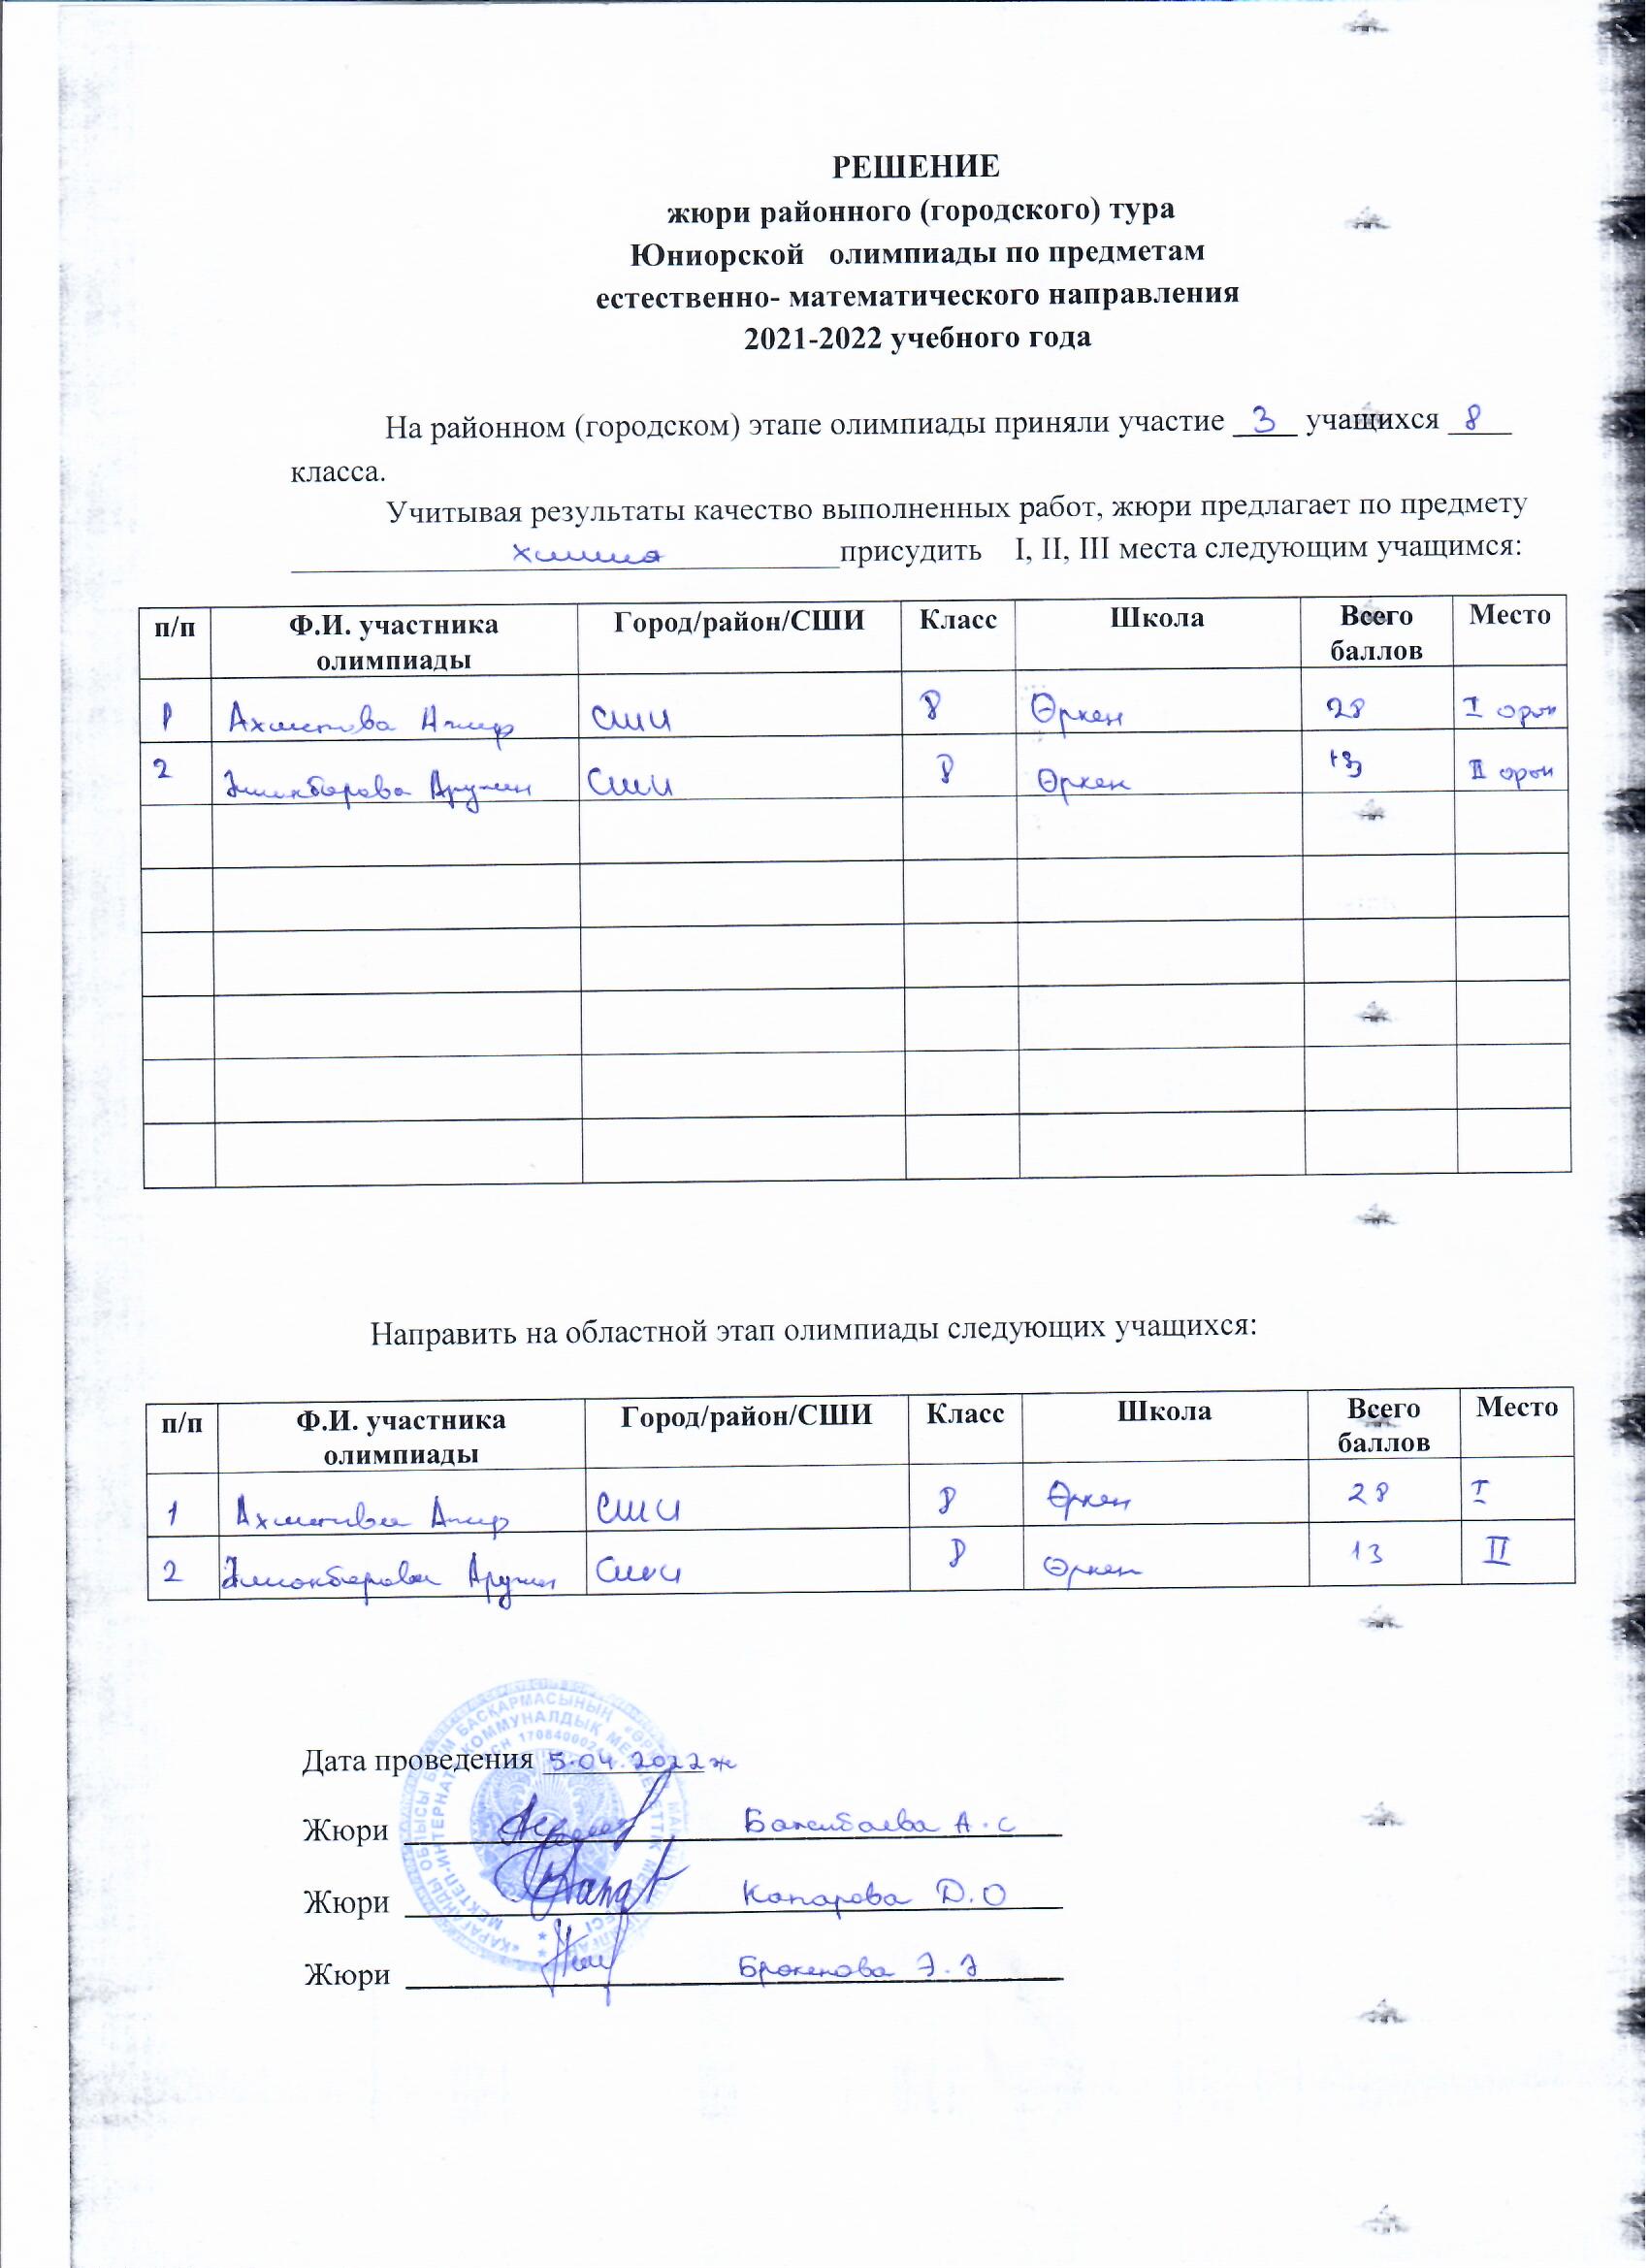 РЕШЕНИЕ
жюри районного (городского) тура
Юниорской олимпиады по предметам
естественно- математического направления
2021-2022 учебного года
На районном (городском) этапе олимпиады приняли участие 3 учащихся 8
класса.
Учитывая результаты качество выполненных работ, жюри предлагает по предмету
химия присудить I, II, III места следующим учащимся:
п/п Ф.И. участника олимпиады Город/район/СШИ Класс Школа Всего баллов Место
1 Ахметова СШИ 8 Өркен 28 I орын
2 Аружан СШИ 8 Өркен 13 II орын
Направить на областной этап олимпиады следующих учащихся:
п/п Ф.И. участника олимпиады Город/район/СШИ Класс Школа Всего баллов Место
1 Ахметова СШИ 8 Өркен 28 I
2 Аружан СШИ 8 Өркен 13 II
Дата проведения 5.04.2022ж
Жюри А.С
Жюри Капарова Д.О
Жюри